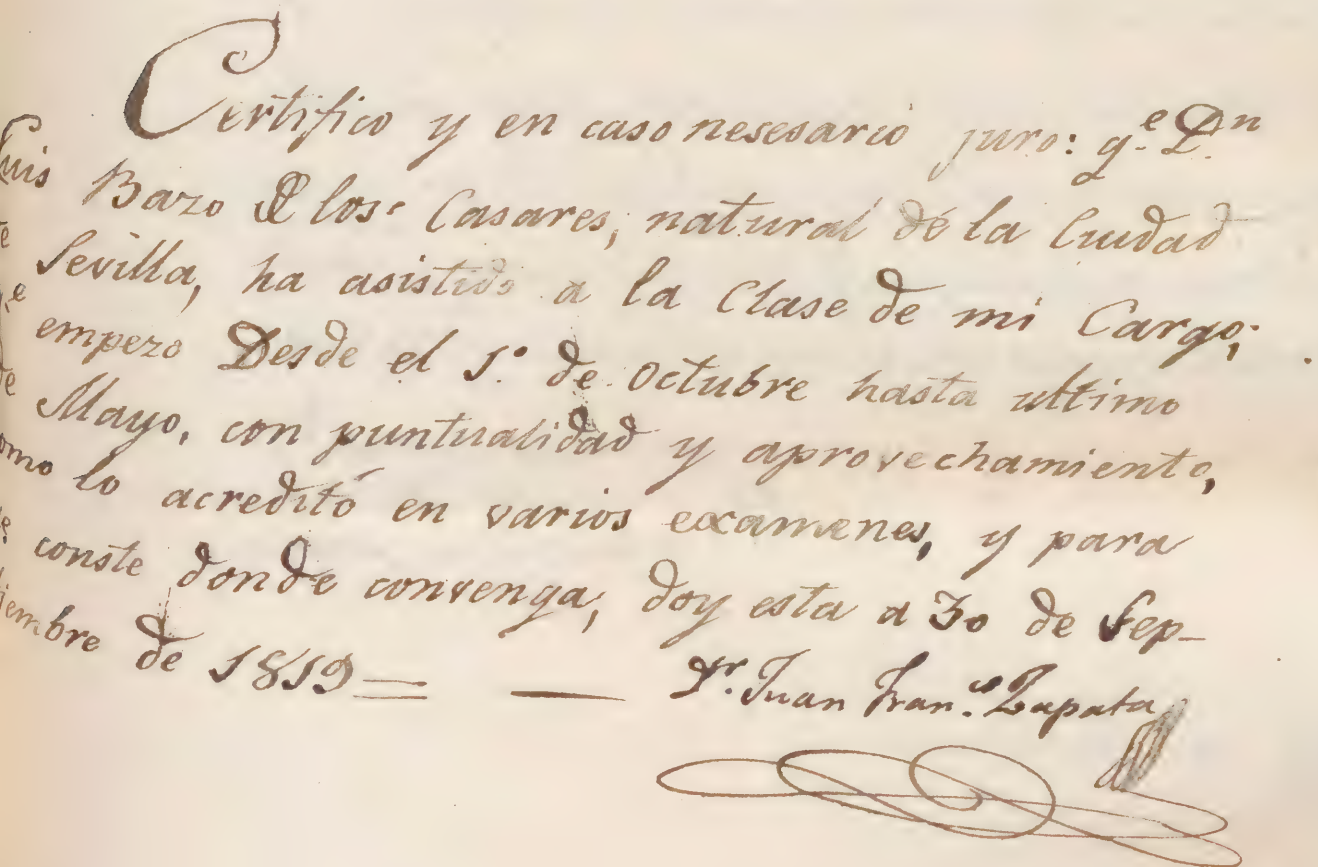 Certifico y en caso nesesario juro: q.e D.n
Luis Bazo de los Casares, natural de la Ciudad
de Sevilla, ha asistido a la Clase de mi Cargo;
empezo Desde el 1.º de Octubre hasta ultimo
de Mayo, con puntualidad y aprovechamiento,
como lo acreditó en varios examenes, y para
conste donde convenga, doy esta a 30 de Sep-
tiembre de 1819 = — Dr. Juan Fran.co Zapata